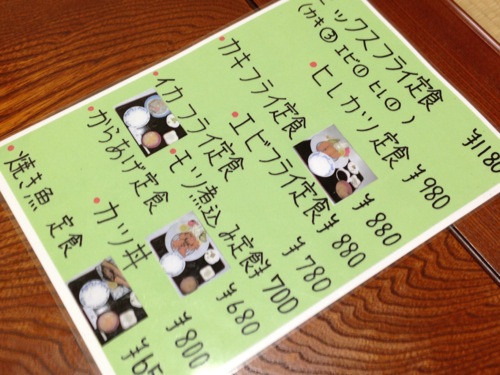 ックスフライ定食 ¥1180
(カキ③ エビ① ヒレ①)
ヒレカツ定食 ¥980
カキフライ定食 ¥880
エビフライ定食 ¥880
イカフライ定食 ¥780
モツ煮込み定食 ¥700
からあげ定食 ¥680
カツ丼 ¥800
焼き魚 定食 ¥65